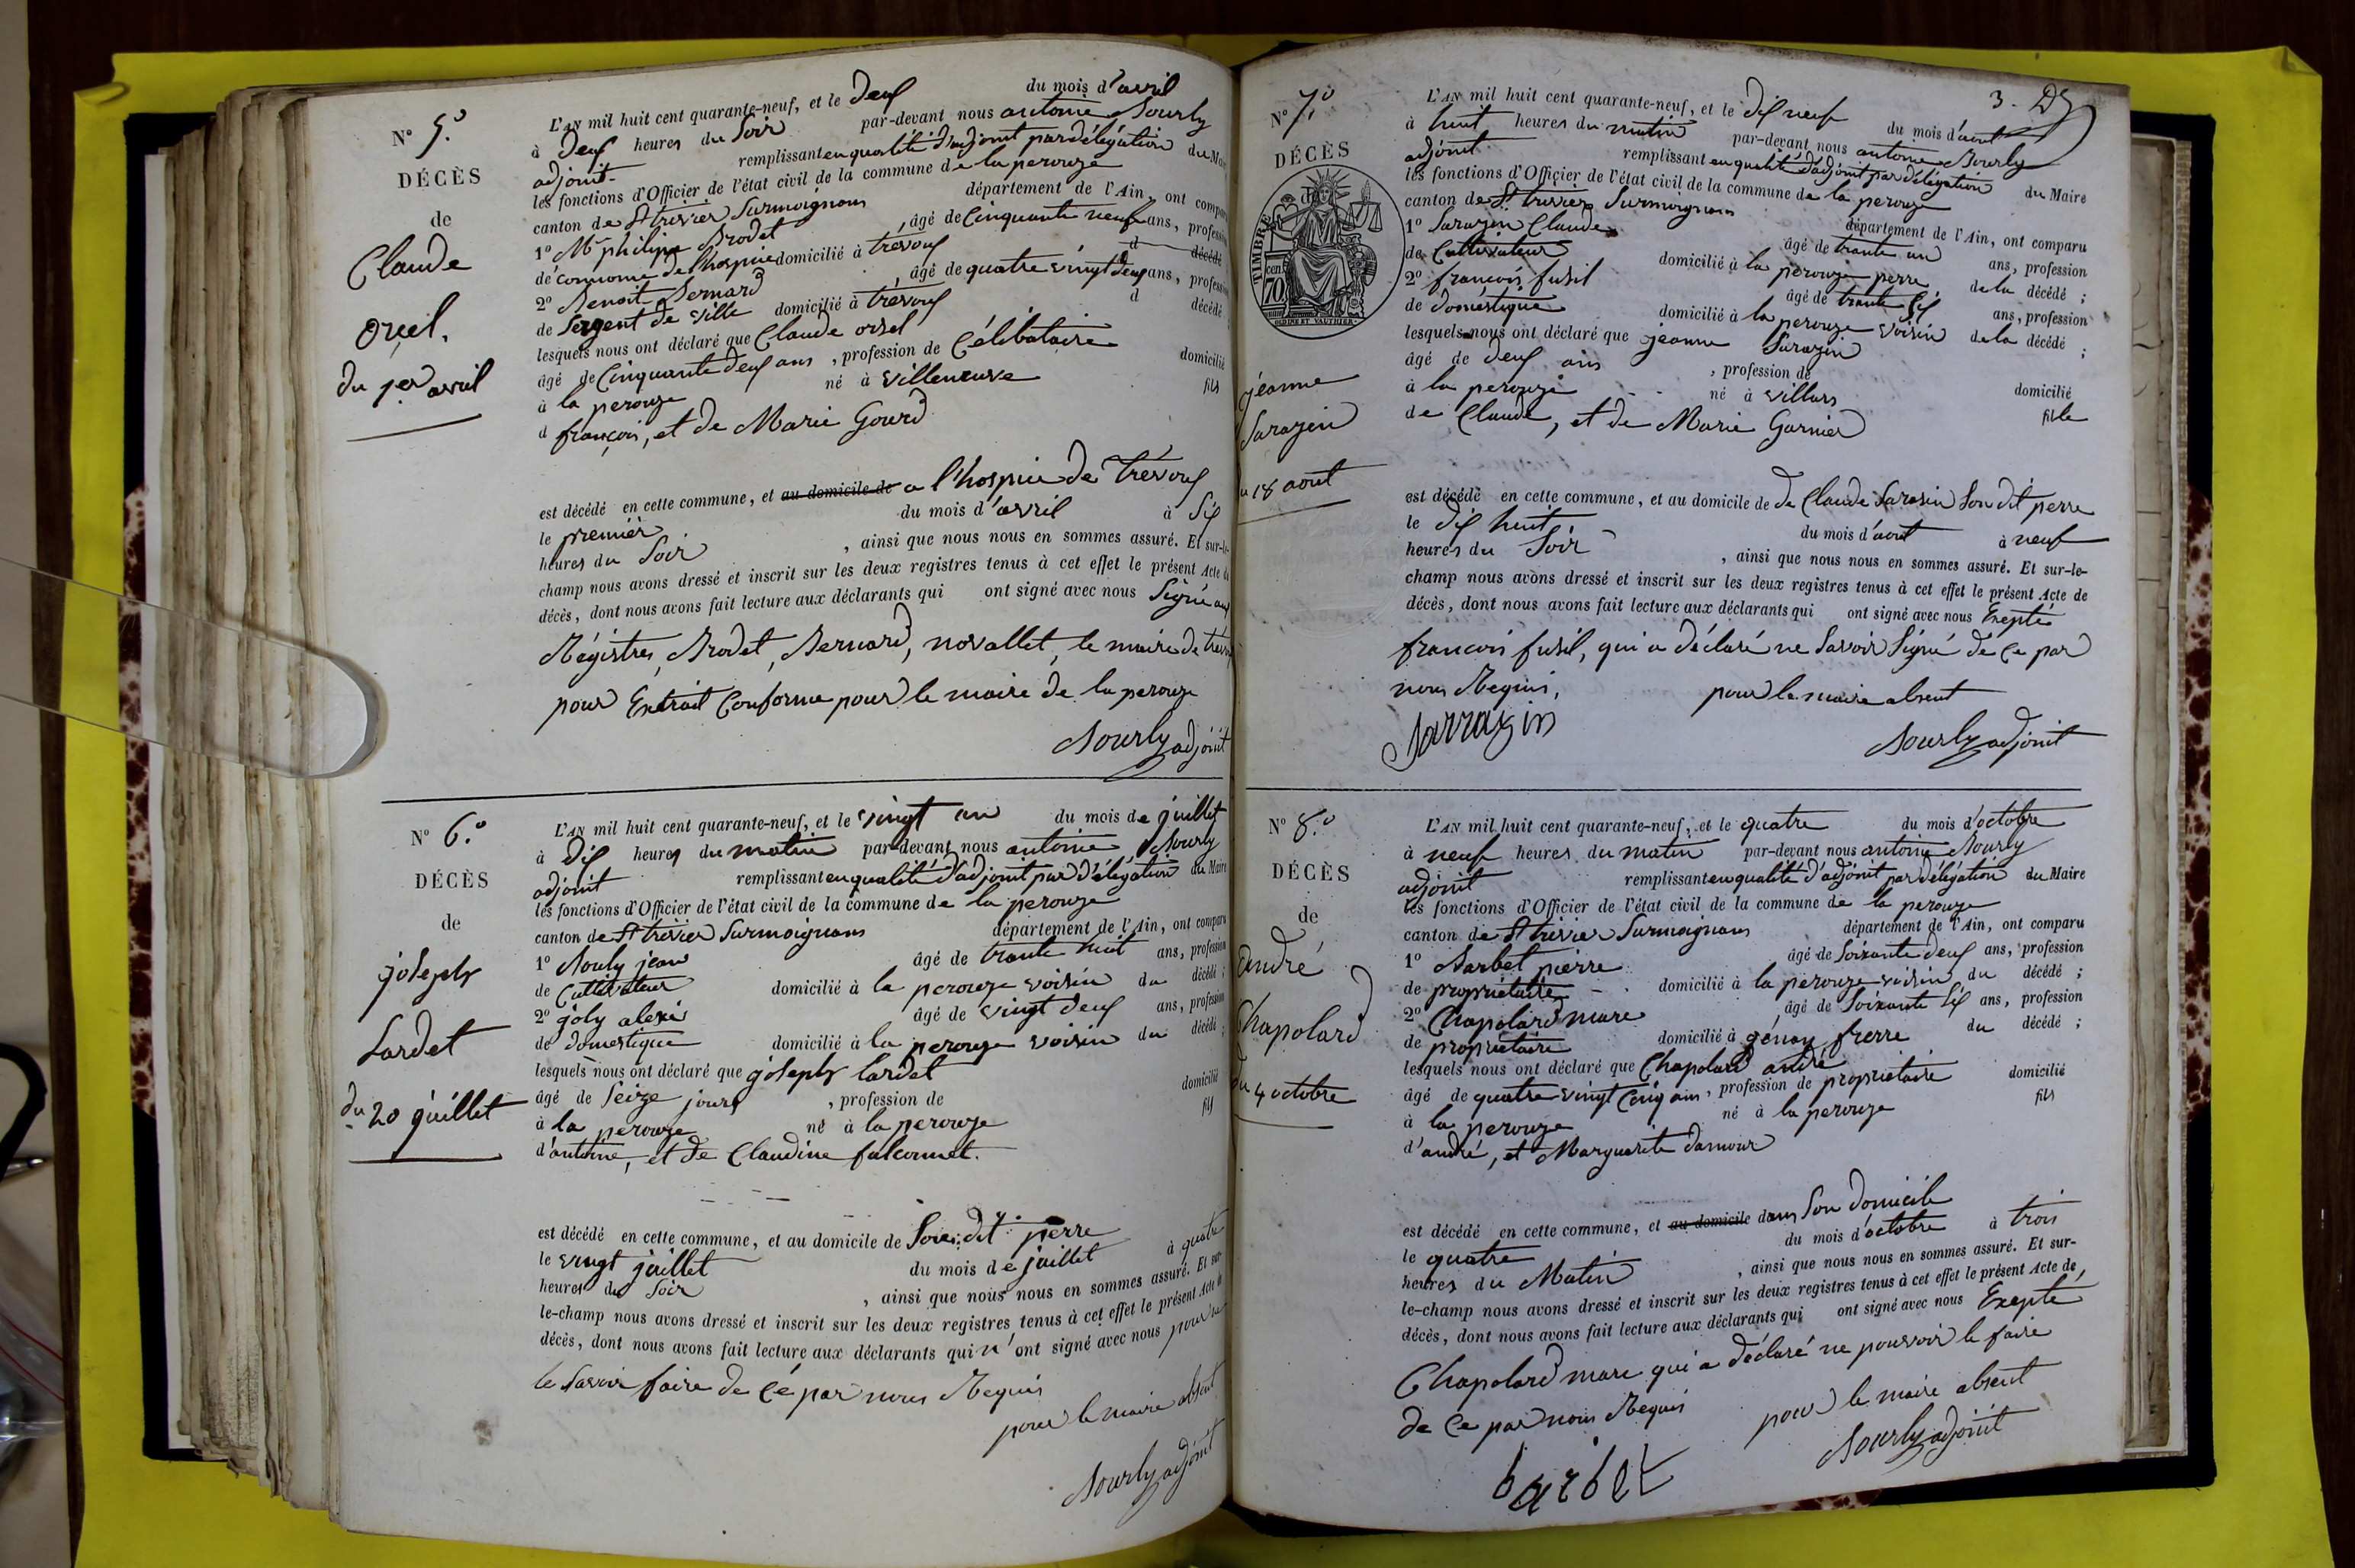 N° 5°
DÉCÈS
de
Claude
orcel.
du 1er avril
L'AN mil huit cent quarante-neuf, et le deux du mois d'avril
à deux heures du Soir par-devant nous antoine Bourly
adjoint remplissant en qualité d'adjoint par délégation du Mai
les fonctions d'Officier de l'état civil de la commune de la perouze
canton de St trivier Surmoignans département de l'Ain, ont compa
1° Mr philippe Brodet âgé de Cinquante neuf ans, profession
de économe de l'hospice domicilié à trévoux d décédé
2° Benoit Bernard âgé de quatre vingt deux ans, profession
de Sergent de ville domicilié à trévoux d décédé
lesquels nous ont déclaré que Claude orsel
âgé de Cinquante deux ans, profession de Célibataire domicilié
à la perouze né à villeneuve fils
d françois, et de Marie Gourd
est décédé en cette commune, et au domicile de a l'hospice de Trévoux
le premier du mois d'avril à Six
heures du Soir, ainsi que nous nous en sommes assuré. Et sur-le-
champ nous avons dressé et inscrit sur les deux registres tenus à cet effet le présent Acte de
décès, dont nous avons fait lecture aux déclarants qui ont signé avec nous Signé aux
Régistres, Brodet, Bernard, novallet, le maire de trévoux
pour Extrait Conforme pour le maire de la perouze
Bourly adjoint
N° 6°
DÉCÈS
de
joseph
Lardet
du 20 juillet
L'AN mil huit cent quarante-neuf, et le vingt un du mois de juillet
à dix heures du matin par-devant nous antoine Bourly
adjoint remplissant en qualité d'adjoint par délégation du Maire
les fonctions d'Officier de l'état civil de la commune de la perouze
canton de St trivier Surmoignans département de l'Ain, ont comparu
1° Bouly jean âgé de trante huit ans, profession
de Cultivateur domicilié à la perouze voisin du décédé ;
2° joly alexis âgé de vingt deux ans, profession
de domestique domicilié à la perouze voisin du décédé ;
lesquels nous ont déclaré que joseph lardet
âgé de Seize jours, profession de domicilié
à la perouze né à la perouze fils
d'antoine, et de Claudine falconnet.
est décédé en cette commune, et au domicile de Son dit perre
le vingt juillet du mois de juillet à quatre
heures du Soir, ainsi que nous nous en sommes assuré. Et sur-
le-champ nous avons dressé et inscrit sur les deux registres tenus à cet effet le présent Acte de
décès, dont nous avons fait lecture aux déclarants qui n'ont signé avec nous pour ne
le Savoir faire de Cé par nous Requis
pour le maire absent
Bourly adjoint
3.
N° 7°
DÉCÈS
TIMBRE
70 cen
OLDINE ET VAUTHIER
jéanne
Sarazin
18 aout
L'AN mil huit cent quarante-neuf, et le dix neuf du mois d'aout
à huit heures du matin par-devant nous antoine Bourly
adjoint remplissant en qualité d'adjoint par délégation du Maire
les fonctions d'Officier de l'état civil de la commune de la perouze
canton de St trivier Surmoignans département de l'Ain, ont comparu
1° Sarazin Claude âgé de trante un ans, profession
de Cultivateur domicilié à la perouze perre de la décédé ;
2° francois fusil âgé de trante Six ans, profession
de domestique domicilié à la perouze voisin de la décédé ;
lesquels nous ont déclaré que jéanne Sarazin
âgé de deux ans, profession de domicilié
à la perouze né à villars fille
de Claude, et de Marie Garnier
est décédé en cette commune, et au domicile de de Claude Sarasin Son dit perre
le dix huit du mois d'aout à neuf
heures du Soir, ainsi que nous nous en sommes assuré. Et sur-le-
champ nous avons dressé et inscrit sur les deux registres tenus à cet effet le présent Acte de
décès, dont nous avons fait lecture aux déclarants qui ont signé avec nous Exepté
francois fusil, qui a déclaré ne Savoir Signé de Ce par
nous Requis, pour le maire absent
Sarrazin Bourly adjoint
N° 8°
DÉCÈS
de
andré
Chapolard
du 4 octobre
L'AN mil huit cent quarante-neuf, et le quatre du mois d'octobre
à neuf heures du matin par-devant nous antoine Bourly
adjoint remplissant en qualité d'adjoint par délégation du Maire
les fonctions d'Officier de l'état civil de la commune de la perouze
canton de St trivier Surmoignans département de l'Ain, ont comparu
1° Barbet pierre âgé de Soixante deux ans, profession
de propriétaire domicilié à la perouze voisin du décédé ;
2° Chapolard marc âgé de Soixante Six ans, profession
de propriétaire domicilié à génay frerre du décédé ;
lesquels nous ont déclaré que Chapolard andré
âgé de quatre vingt Cinq ans, profession de propriétaire domicilié
à la perouze né à la perouze fils
d'andré, et Marguerite damour
est décédé en cette commune, et au domicile dans Son domicile
le quatre du mois d'octobre à trois
heures du Matin, ainsi que nous nous en sommes assuré. Et sur-
le-champ nous avons dressé et inscrit sur les deux registres tenus à cet effet le présent Acte de
décès, dont nous avons fait lecture aux déclarants qui ont signé avec nous Exepté
Chapolard marc qui a déclaré ne pouvoir le faire
de Ce par nous Requis pour le maire absent
barbet Bourly adjoint